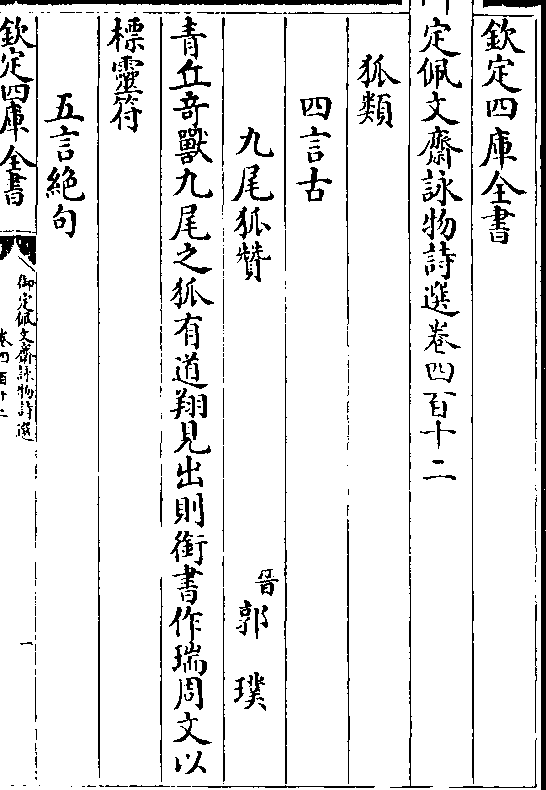 欽定四庫全書
定佩文齋詠物詩選卷四百十二
狐類
四言古
九尾狐贊
晉郭璞
青丘奇獸九尾之狐有道翔見出則銜書作瑞周文以
標靈符
五言絶句
欽定四庫全書
御定佩文齋詠物詩選
卷四百十二
一